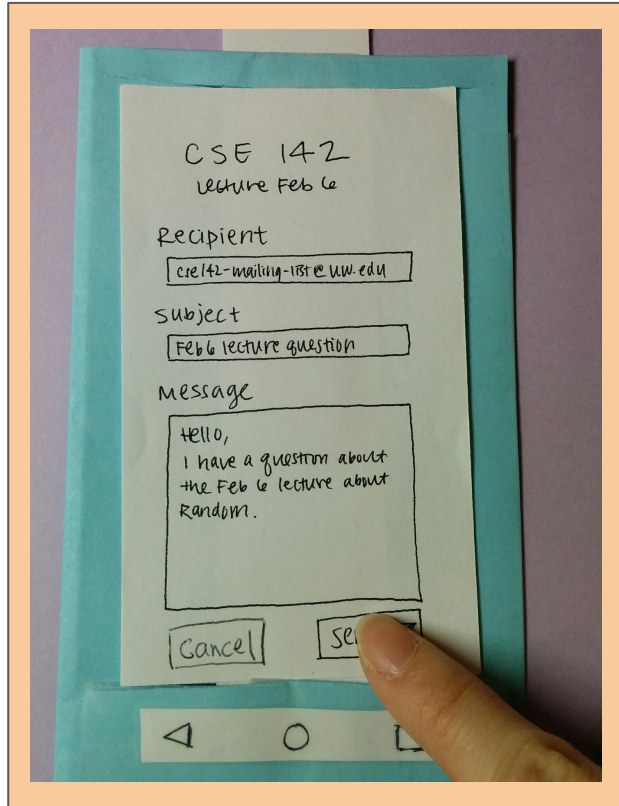 CSE 142
Lecture Feb 6
Recipient
cse142-mailing-list@uw.edu
Subject
Feb 6 lecture question
Message
Hello,
I have a question about
the Feb 6 lecture about
Random.
Cancel